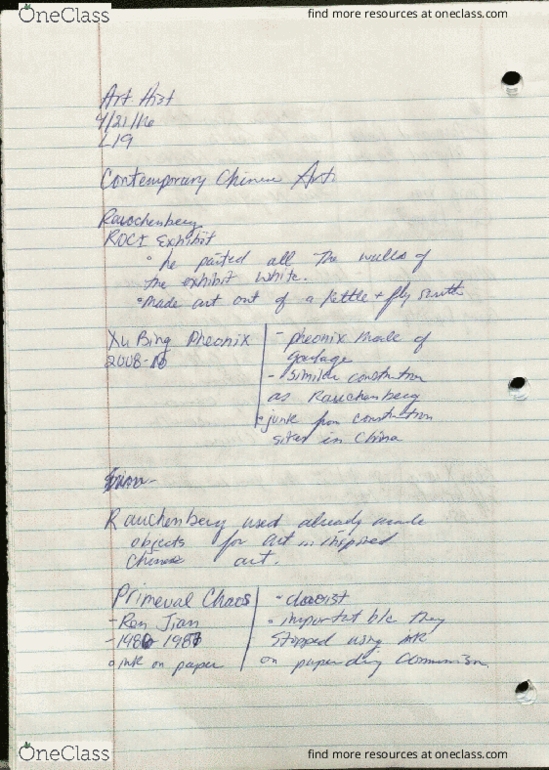 OneClass
find more resources at oneclass.com
Art Hist
4/21/16
L19
Contemporary Chinese Art
Rauchenberg
ROCI Exhibit
• he painted all the walls of
the exhibit white.
• made art out of a kettle + fly
Xu Bing Pheonix
2008-10
- pheonix made of
garbage
- similar constrution
as Rauchenberg
• junk from constrution
sites in China
Rauchenberg used already made
objects for art inspired
Chinese art.
Primeval Chaos
- Ren Jian
- 1986-1987
• ink on paper
- daoist
• important b/c they
stopped using ink
on paper ding Communism
OneClass
find more resources at oneclass.com